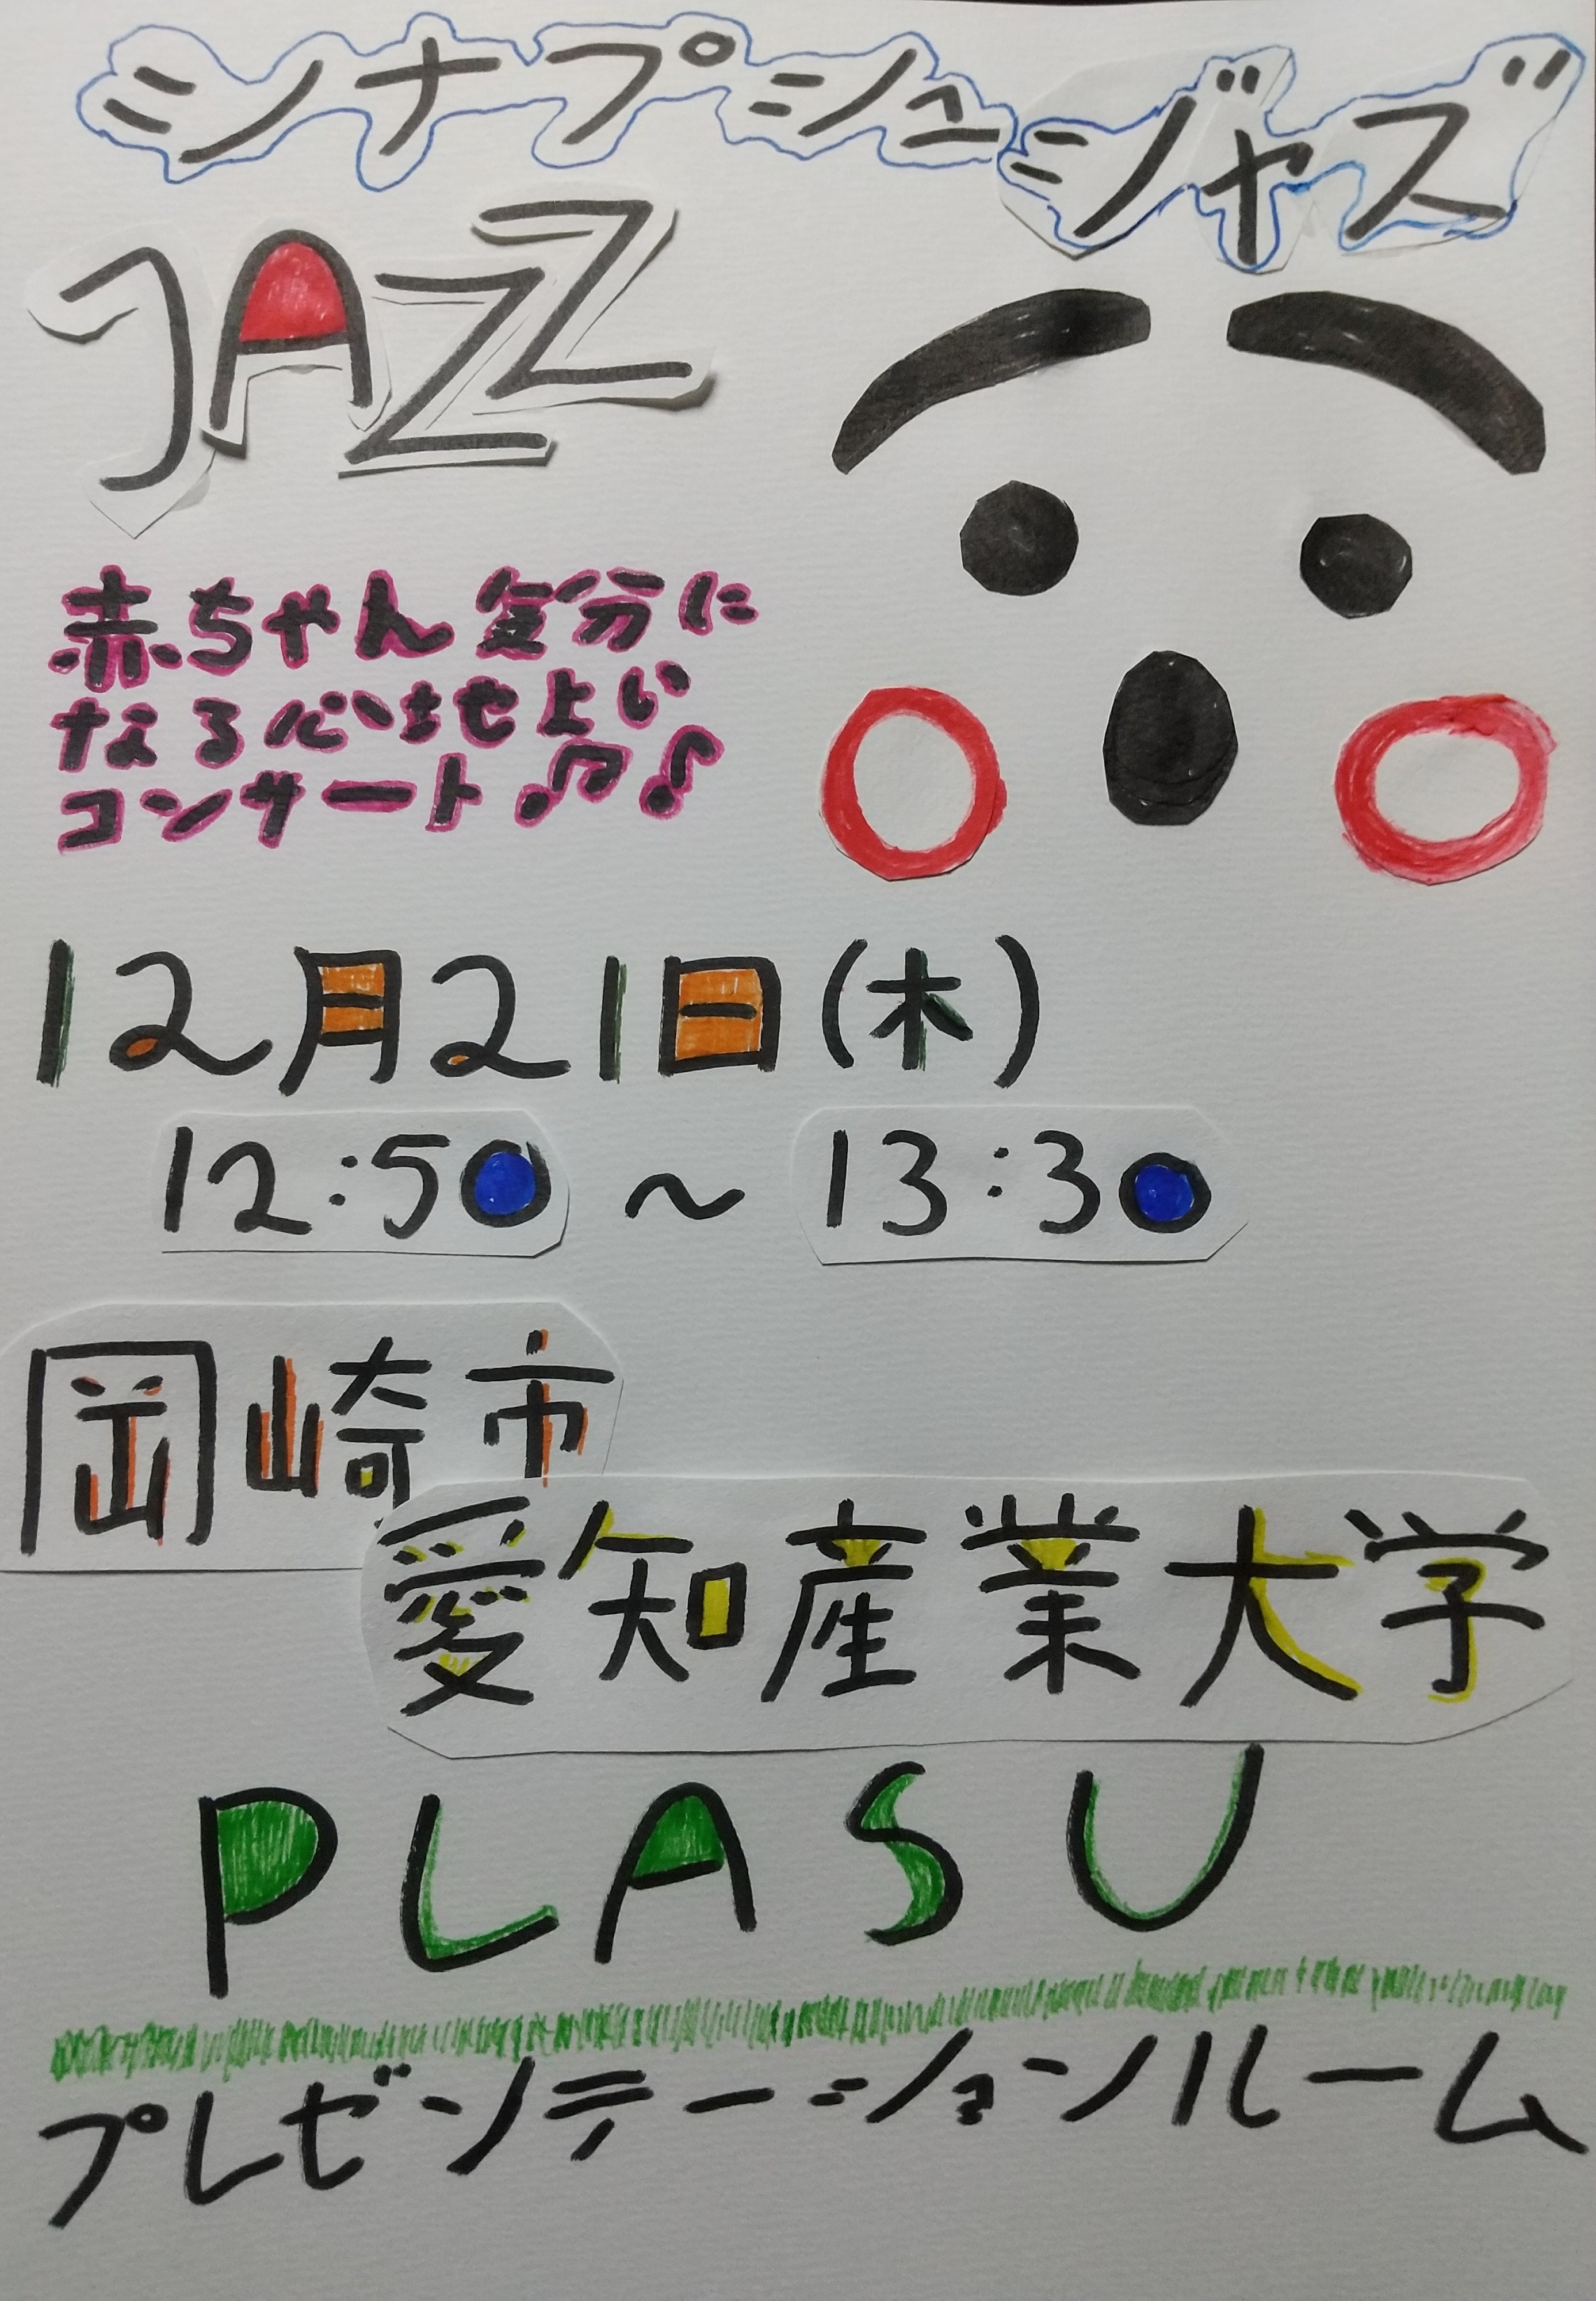 シナプシュジャズ
JAZZ
赤ちゃん気分に
なる心地よい
コンサート♫♪
12月21日(木)
12:50～13:30
岡崎市
愛知産業大学
PLASU
プレゼンテーションルーム